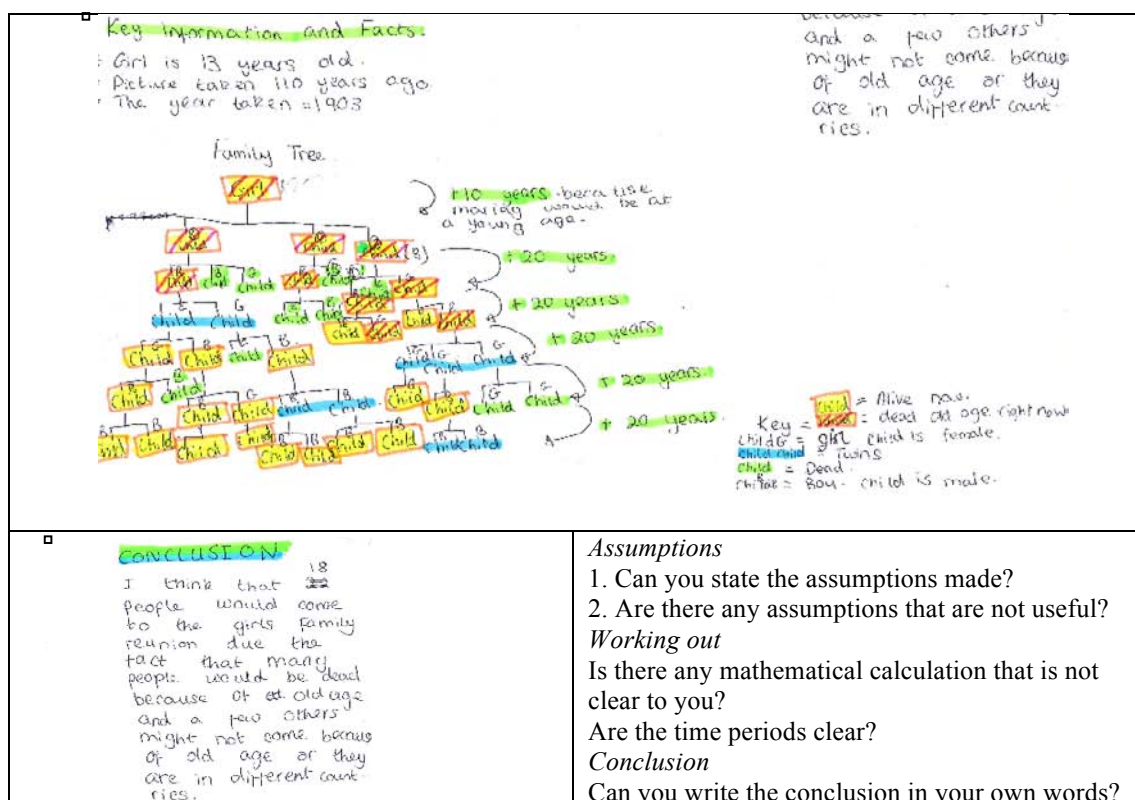 Key information and Facts.
Girl is 13 years old.
Picture taken 110 years ago.
The year taken = 1903
and a few others
might not come becaus
of old age or they
are in different count-
ries.
Family Tree
Girl
+10 years because
would be at
a young age.
+ 20 years.
+ 20 years
+ 20 years
+ 20 years.
+ 20 years.
child child child
child child child child child
child child child child child child child
child child child child child child child
child child child child child child child child child child
child child child child child child child child child
child = Alive now.
Key = = dead old age right now
child G = girl child is female.
child child = Twins
child = Dead.
= Boy - child is male.
CONCLUSION
18
I think that
people would come
to the girls family
reunion due the
fact that many
people would be dead
because of old age
and a few others
might not come becaus
of old age or they
are in different count-
ries.
Assumptions
1. Can you state the assumptions made?
2. Are there any assumptions that are not useful?
Working out
Is there any mathematical calculation that is not
clear to you?
Are the time periods clear?
Conclusion
Can you write the conclusion in your own words?